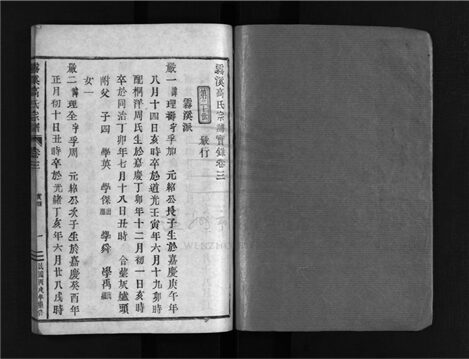 霧溪高氏宗譜實錄卷三
霧溪派
嚴行
嚴一 諱理 字 元 公長子生於嘉慶庚午年
八月十四日亥時卒於道光壬寅年六月十九卯時
配桐洋周氏生於嘉慶丁卯年十二月初一日亥時
卒於同治丁卯年七月十八日丑時 合葬灰爐頭
附父 子四 學英 學保 學舜 學禹
女一
嚴二 諱理全字孚周 元 公次子生於嘉慶癸酉年
正月初十日丑時卒於光緒丁亥年六月廿八戌時
霧溪高氏宗譜 卷三 一